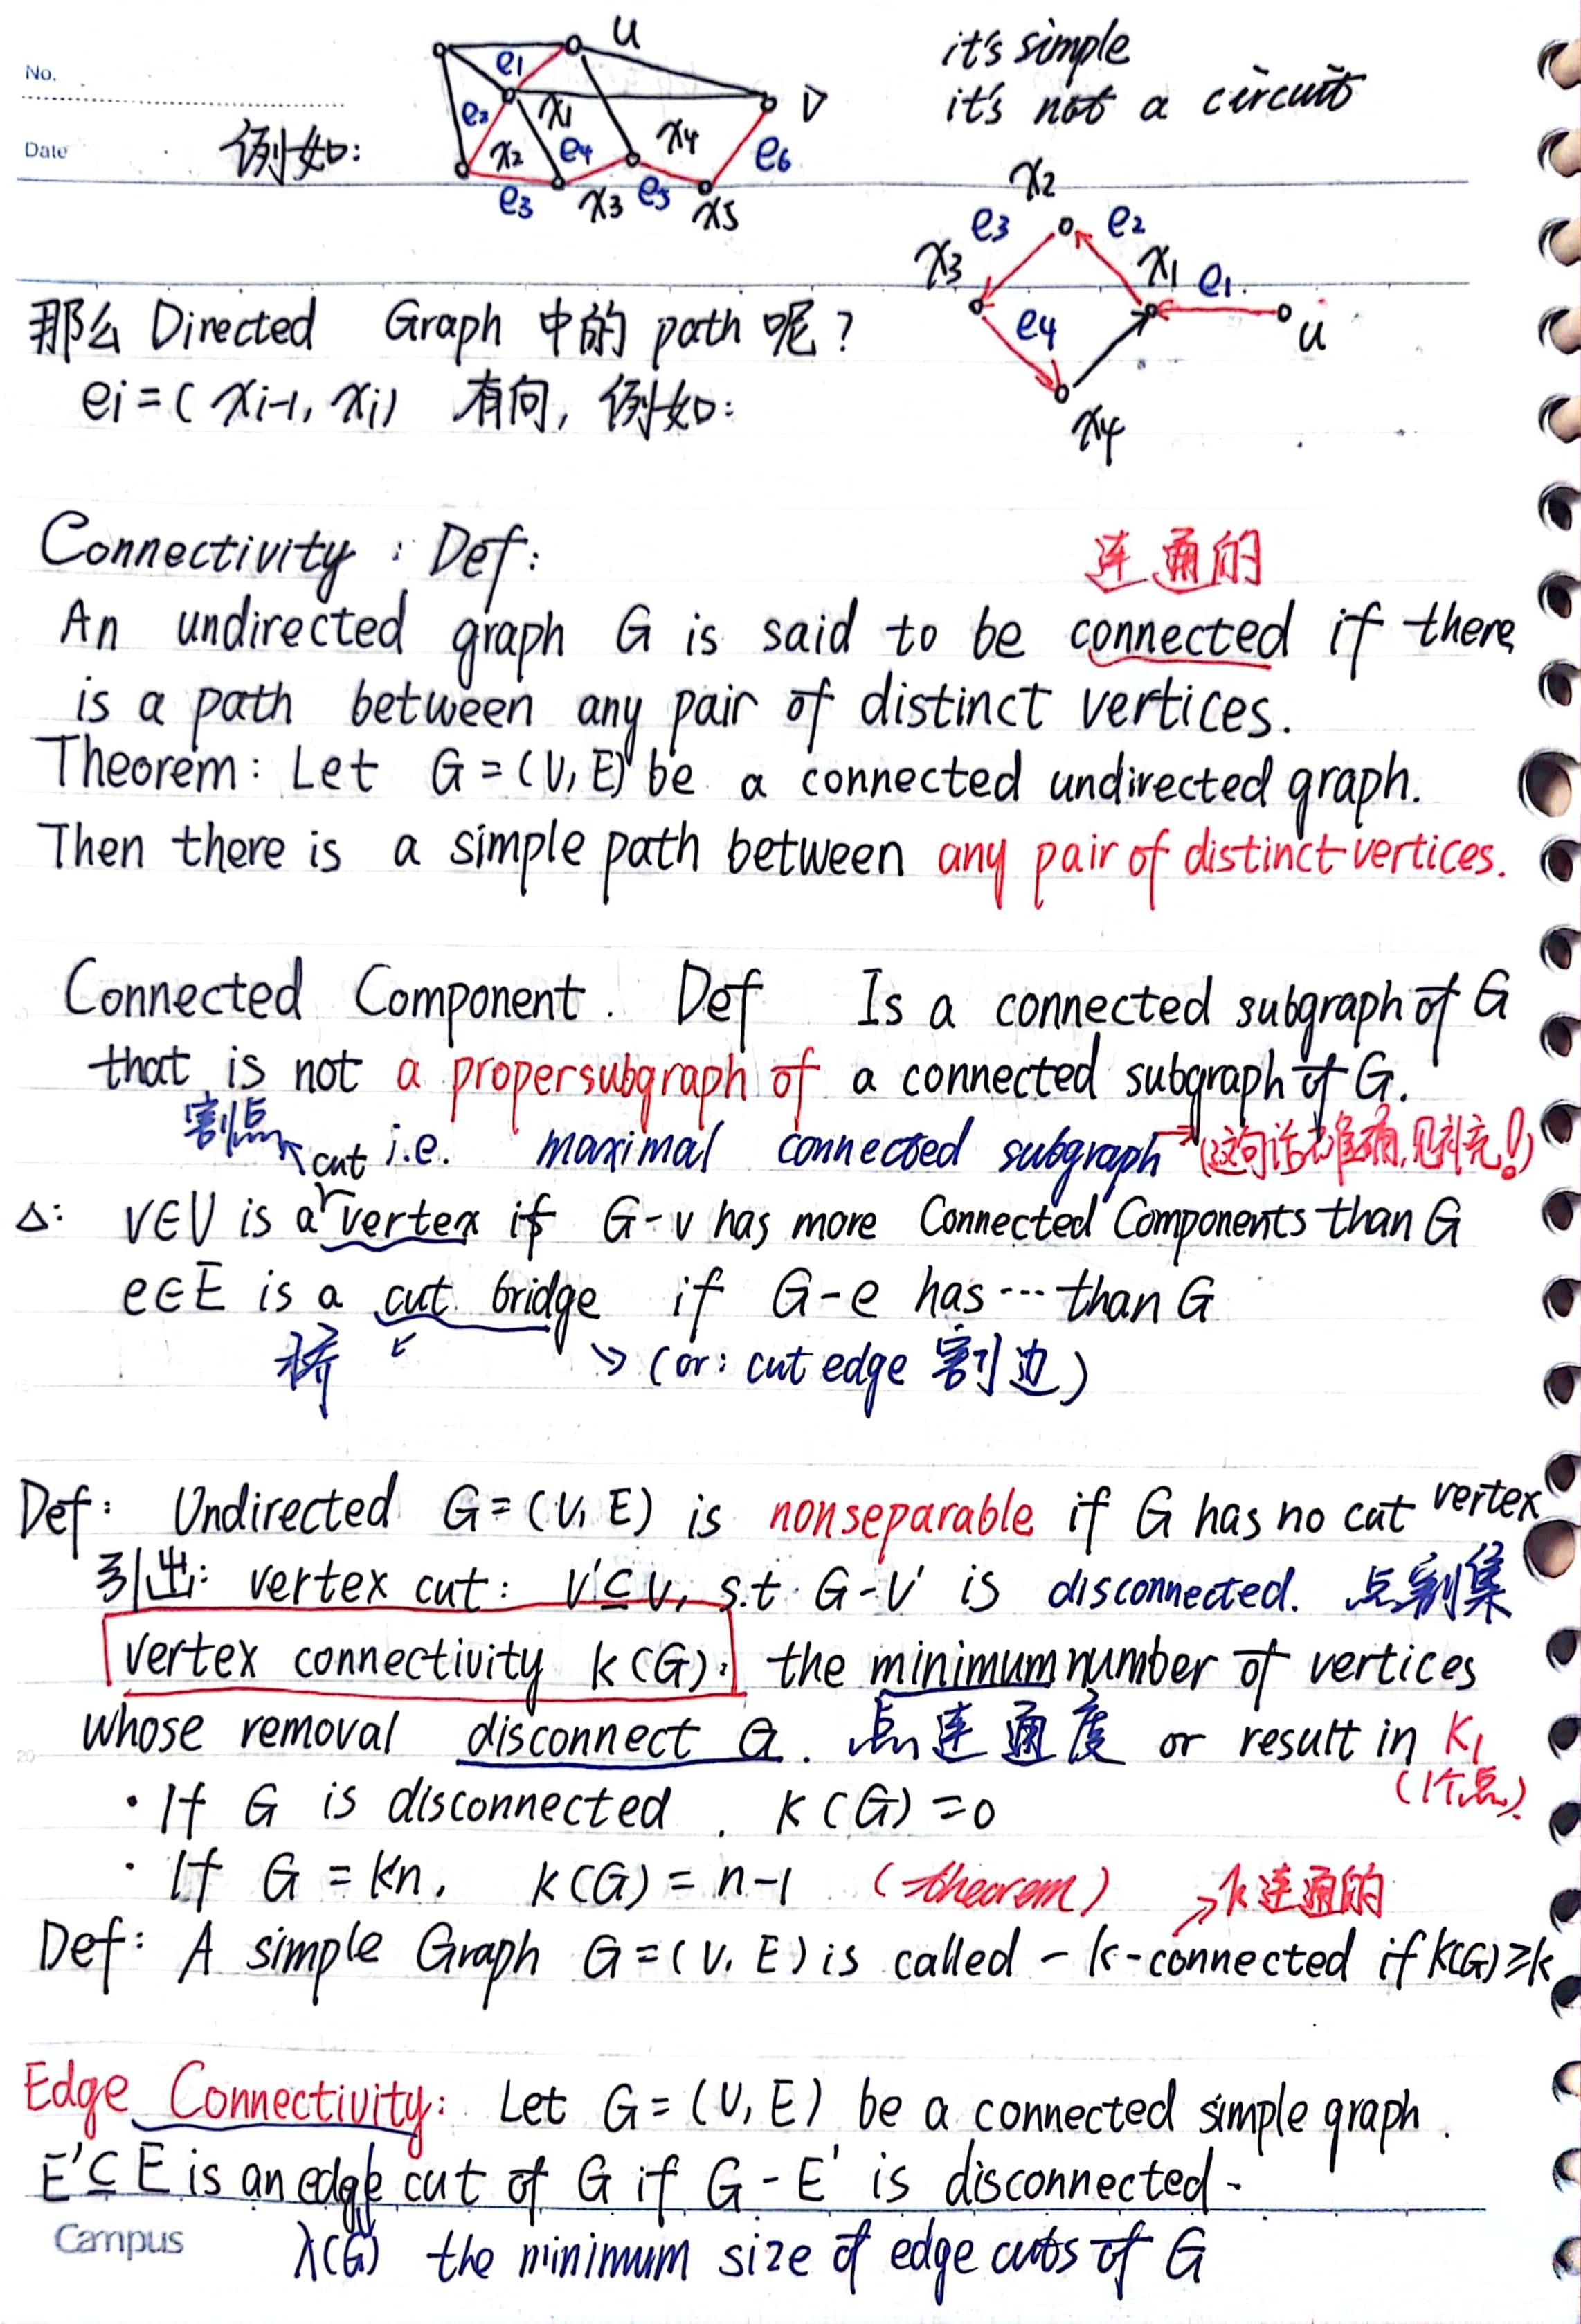 No.
Date
例如:
u
v
e1
e2
x1
x2
e4
x4
e6
e3
x3
e5
x5
it's simple
it's not a circuit
x2
e3
e2
x3
x1
e1
e4
u
x4
那么 Directed Graph 中的 path 呢?
ei=(xi-1, xi) 有向, 例如:
Connectivity : Def:
连通的
An undirected graph G is said to be connected if there
is a path between any pair of distinct vertices.
Theorem: Let G=(V, E) be a connected undirected graph.
Then there is a simple path between any pair of distinct vertices.
Connected Component. Def Is a connected subgraph of G
that is not a proper subgraph of a connected subgraph of G.
割点 cut i.e. maximal connected subgraph → (这句话才准确,见补充!)
Δ: v∈V is a vertex if G-v has more Connected Components than G
e∈E is a cut bridge if G-e has ··· than G
桥 (or: cut edge 割边)
Def: Undirected G=(V, E) is nonseparable if G has no cut vertex
引出: vertex cut: V'⊆V, s.t. G-V' is disconnected. 点割集
vertex connectivity k(G): the minimum number of vertices
whose removal disconnect G. 点连通度 or result in K1
(1个点)
· If G is disconnected. k(G)=0
· If G = Kn, k(G) = n-1 (theorem) k连通的
Def: A simple Graph G=(V, E) is called - k-connected if k(G)≥k
Edge Connectivity: Let G=(V, E) be a connected simple graph.
E'⊆E is an edge cut of G if G-E' is disconnected.
Campus
λ(G) the minimum size of edge cuts of G